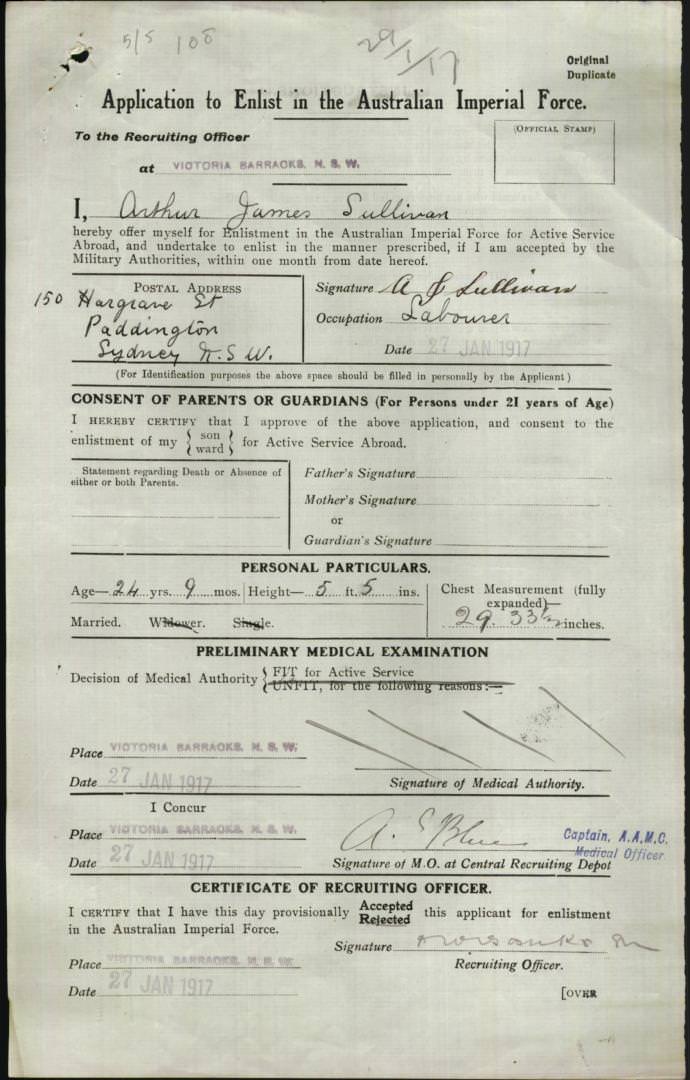 5/5 108
29/1/17
Original
Duplicate
Application to Enlist in the Australian Imperial Force.
To the Recruiting Officer
(OFFICIAL STAMP)
at VICTORIA BARRACKS, N. S. W.
I, Arthur James Sullivan
hereby offer myself for Enlistment in the Australian Imperial Force for Active Service
Abroad, and undertake to enlist in the manner prescribed, if I am accepted by the
Military Authorities, within one month from date hereof.
POSTAL ADDRESS
150 Hargrave St
Paddington
Sydney N. S. W.
Signature A J Sullivan
Occupation Labourer
Date 27 JAN 1917
(For Identification purposes the above space should be filled in personally by the Applicant)
CONSENT OF PARENTS OR GUARDIANS (For Persons under 21 years of Age)
I HEREBY CERTIFY that I approve of the above application, and consent to the
enlistment of my { son ward } for Active Service Abroad.
Statement regarding Death or Absence of
either or both Parents.
Father's Signature
Mother's Signature
or
Guardian's Signature
PERSONAL PARTICULARS.
Age— 24 yrs. 9 mos. Height— 5 ft. 5 ins.
Married. Widower. Single.
Chest Measurement (fully
expanded)—
29. 33½ inches.
PRELIMINARY MEDICAL EXAMINATION
Decision of Medical Authority { FIT for Active Service
UNFIT, for the following reasons:—
Place VICTORIA BARRACKS, N. S. W.
Date 27 JAN 1917
Signature of Medical Authority.
I Concur
Place VICTORIA BARRACKS, N. S. W.
Date 27 JAN 1917
A. E Blue
Captain, A.A.M.C.
Medical Officer
Signature of M.O. at Central Recruiting Depot
CERTIFICATE OF RECRUITING OFFICER.
I CERTIFY that I have this day provisionally Accepted Rejected this applicant for enlistment
in the Australian Imperial Force.
Signature
Place VICTORIA BARRACKS, N. S. W.
Recruiting Officer.
Date 27 JAN 1917
[OVER